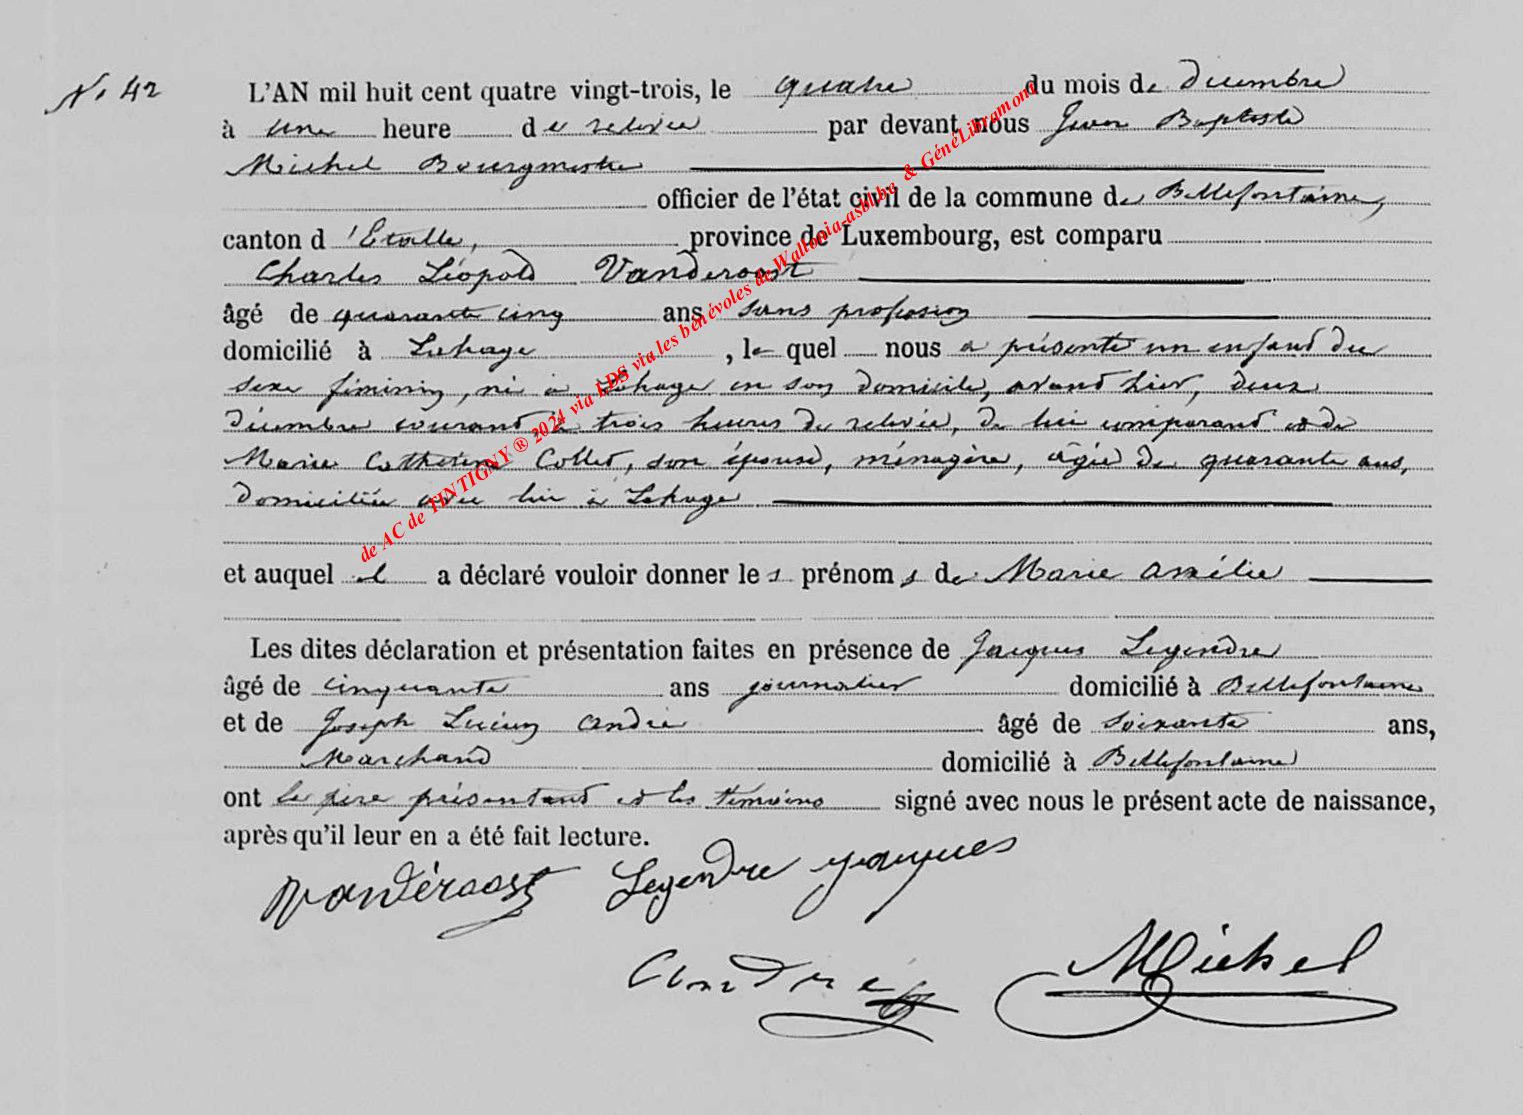 N. 42
L'AN mil huit cent quatre vingt-trois, le quatre du mois de décembre
à une heure de relevée par devant nous Jean Baptiste
Michel Bourgmestre
officier de l'état civil de la commune de Bellefontaine,
canton d'Etalle, province de Luxembourg, est comparu
Charles Léopold Vanderoost
âgé de quarante cinq ans sans profession
domicilié à Lahage, le quel nous a présenté un enfant du
sexe féminin, né à Lahage en son domicile, avant hier, deux
décembre courant, à trois heures de relevée, de lui comparant et de
Marie Catherine Collet, son épouse, ménagère, âgée de quarante ans,
domiciliée avec lui à Lahage
et auquel il a déclaré vouloir donner les prénoms de Marie Amélie
Les dites déclaration et présentation faites en présence de Jacques Legendre
âgé de cinquante ans journalier domicilié à Bellefontaine
et de Joseph Lucien André âgé de soixante ans,
Marchand domicilié à Bellefontaine
ont le père présentant et les témoins signé avec nous le présent acte de naissance,
après qu'il leur en a été fait lecture.
Vandéroost Legendre jacques
André Michel
de AC de TINTIGNY ® 2024 via LDS via les bénévoles de Wallonia-asbl.be & GénéLibramont